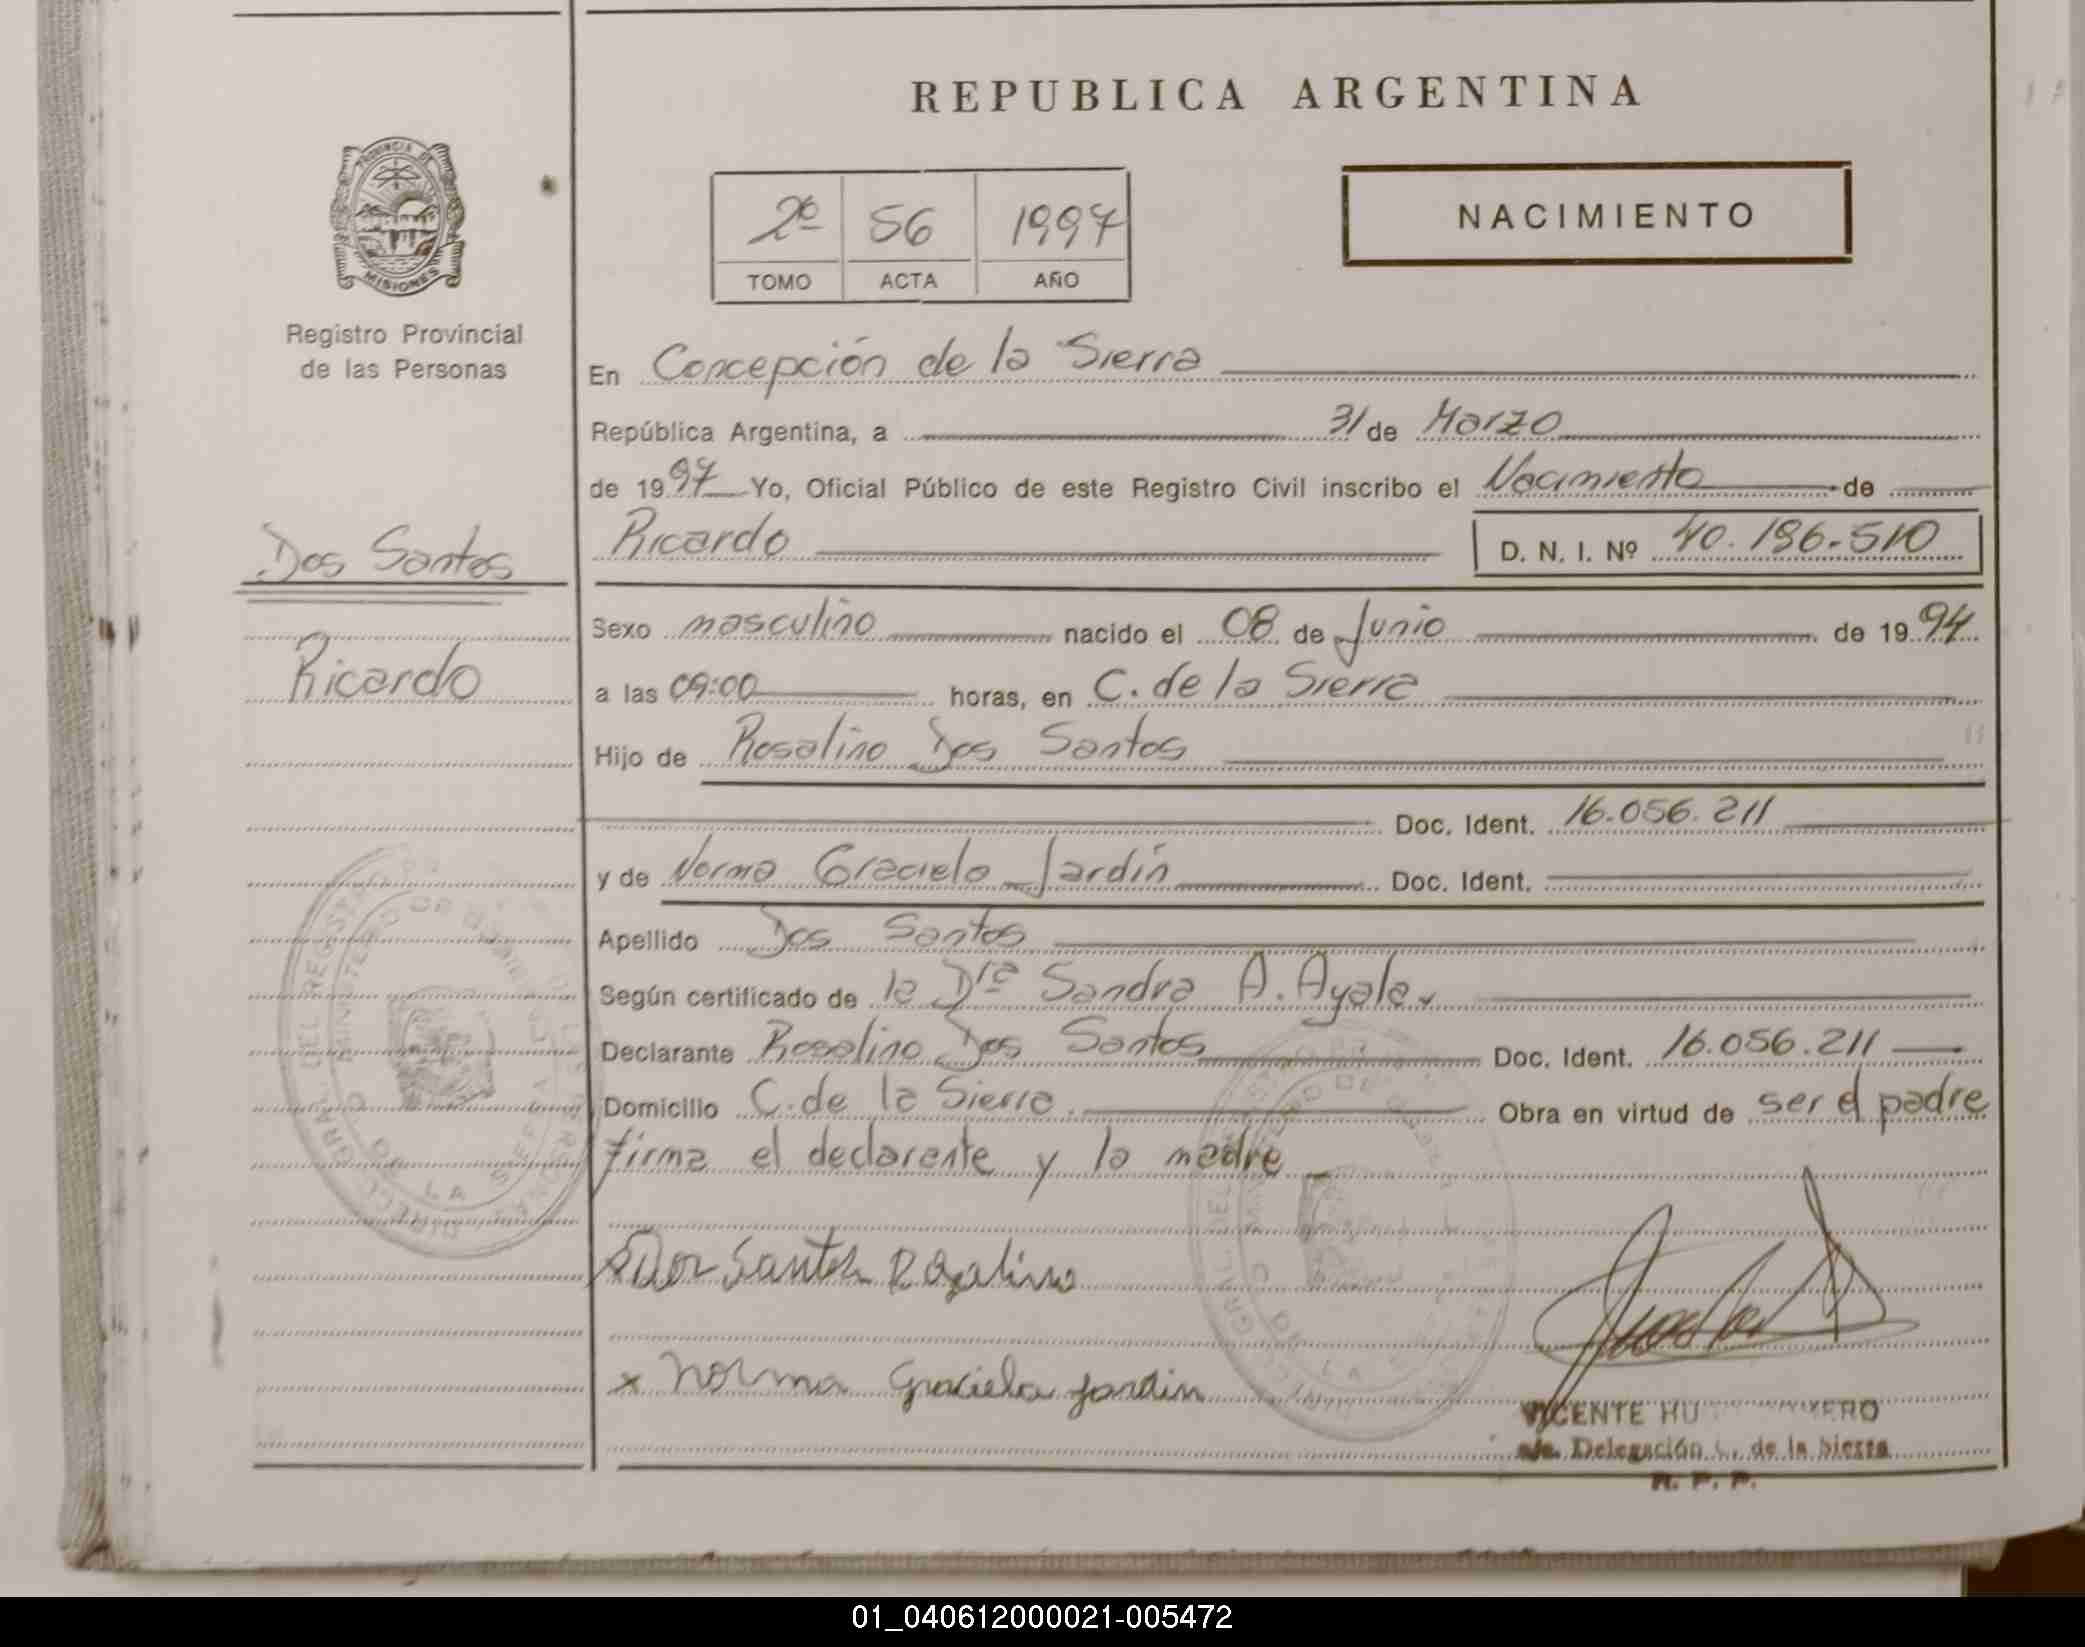 REPUBLICA ARGENTINA
PROVINCIA DE
MISIONES
2º 56 1997
TOMO ACTA AÑO
NACIMIENTO
Registro Provincial
de las Personas
En Concepción de la Sierra
República Argentina, a 31 de Marzo
de 1997 Yo, Oficial Público de este Registro Civil inscribo el Nacimiento de
Ricardo D. N. I. Nº 40.196.510
Dos Santos
Ricardo
Sexo masculino nacido el 08 de Junio de 1994
a las 09:00 horas, en C. de la Sierra
Hijo de Rosalino Dos Santos
Doc. Ident. 16.056.211
y de Norma Graciela Jardín Doc. Ident.
Apellido Dos Santos
Según certificado de la Dra Sandra A. Ayala
Declarante Rosalino Dos Santos Doc. Ident. 16.056.211
Domicilio C. de la Sierra. Obra en virtud de ser el padre
firma el declarante y la madre
Dos Santos Rosalino
x Norma Graciela Jardin
VICENTE HU
Delegación C. de la Sierra
R. P. P.
01_040612000021-005472